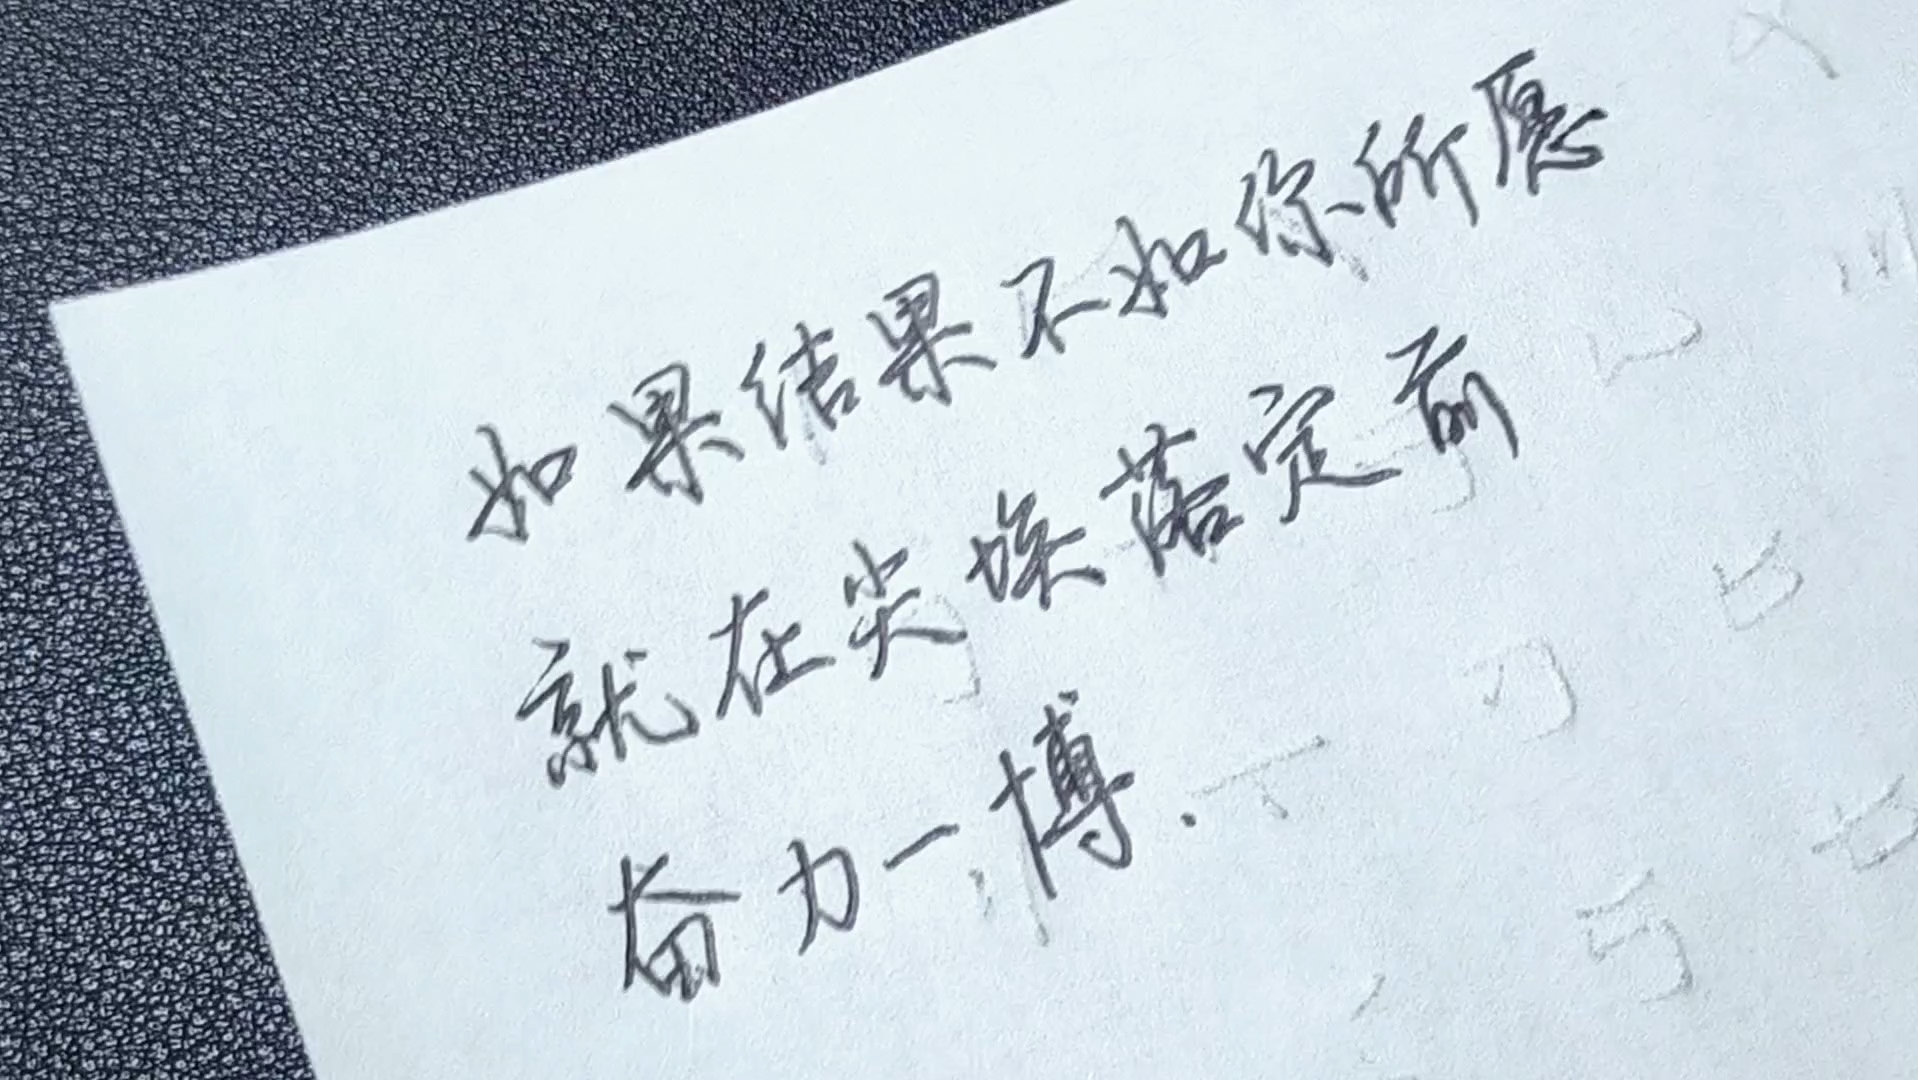 如果结果不如你所愿
就在尖埃落定前
奋力一搏.